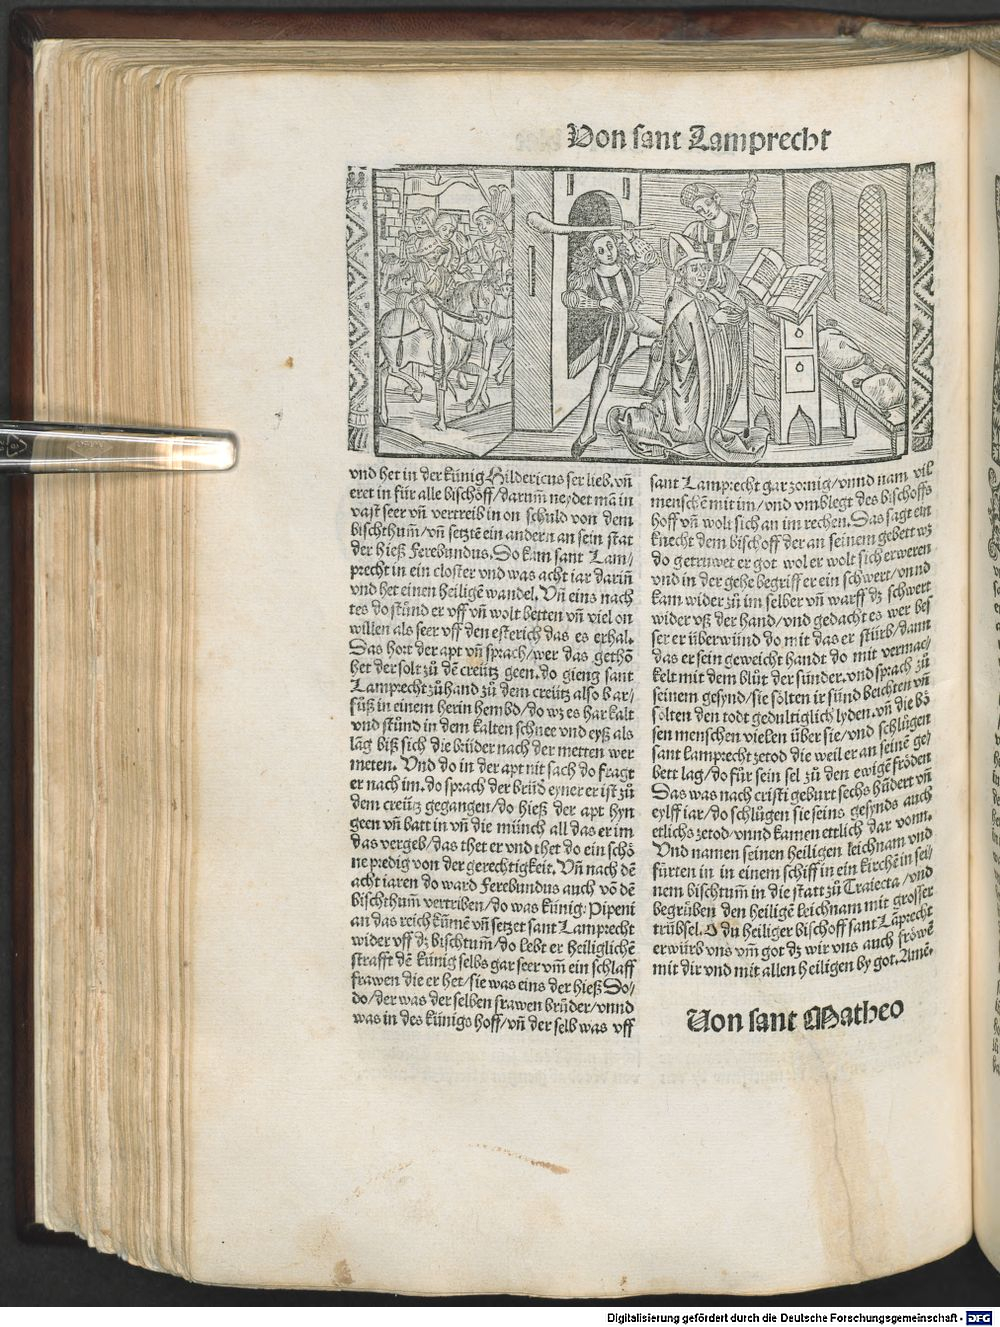 Von sant Lamprecht
vnd het in der künig Hildericus ser lieb, vñ
eret in für alle bischöff/darum̃ neydet mã in
vast seer vñ vertreib in on schuld von dem
bischthum̃/vñ setztẽ ein andern an sein stat
der hieß Ferebundus. So kam sant Lam/
precht in ein closter vnd was acht iar darin̄
vnd het einen heiligẽ wandel. Vñ eins nach
tes do stůnd er vff vñ wolt betten vñ viel on
willen als seer vff den esterich das es erhal.
Das hort der apt vñ sprach/wer das gethõ
het der solt zů dẽ creütz geen. do gieng sant
Lamprecht zůhand zů dem creütz also bar/
fůß in einem herin hembd/do wz es har kalt
vnd stůnd in dem kalten schnee vnd eyß als
lãg biß sich die brüder nach der metten wer
meten. Vnd do in der apt nit sach do fragt
er nach im. do sprach der brüd eyner er ist zů
dem creütz gegangen/do hieß der apt hyn
geen vñ batt in vñ die münch all das er im
das vergeb/das thet er vnd thet do ein schö
ne predig von der gerechtigkeit. Vñ nach dẽ
acht iaren do ward Ferebundus auch võ dẽ
bischthum̃ vertriben/do was künig Pipeni
an das reich kũmẽ vñ setzet sant Lamprecht
wider vff dz bischtum̃/do lebt er heiliglichẽ
strafft dẽ künig selbs gar seer vm̃ ein schlaff
frawen die er het/sie was eins der hieß Do/
do/der was der selben frawen brüder/vnnd
was in des künigs hoff/vñ der selb was vff
sant Lamprecht gar zornig/vnnd nam vil
menschẽ mit im/vnd vmblegt des bischoffs
hoff vñ wolt sich an im rechen. Das sagt ein
knecht dem bischoff der an seinem gebett wz
do getruwet er got wol er wolt sich erweren
vnd in der gehe begriff er ein schwert/vnnd
kam wider zů im selber vñ warff dz schwert
wider vß der hand/vnd gedacht es wer bes
ser er überwünd do mit das er stürb/dann
das er sein geweicht handt do mit vermac/
kelt mit dem blůt der sünder. vnd sprach zů
seinem gesynd/sie solten ir sünd beichten vñ
solten den todt gedultiglich lyden. vñ die bö
sen menschen vielen über sie/vnd schlůgen
sant lamprecht zetod die weil er an seinẽ ge/
bett lag/do für sein sel zů den ewigẽ fröden
Das was nach cristi geburt sechs hũdert vñ
eylff iar/do schlůgen sie seins gesynds auch
etlichs zetod/vnnd kamen ettlich dar vonn.
Vnd namen seinen heiligen leichnam vnd
fürten in in einem schiff in ein kirchẽ in sei/
nem bischtum̃ in die statt zů Traiecta/vnd
begrůben den heiligẽ leichnam mit grosser
trübsel. O du heiliger bischoff sant Lãprecht
erwürb vns vm̃ got dz wir vns auch fröwẽ
mit dir vnd mit allen heiligen by got. Amẽ.
Von sant Matheo
Digitalisierung gefördert durch die Deutsche Forschungsgemeinschaft - DFG